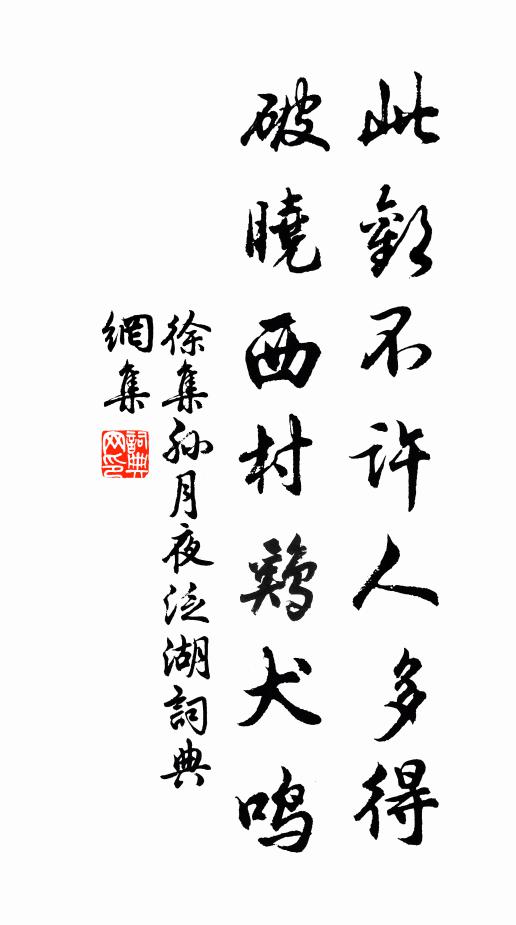 此歡不許人多得
破曉西村鷄犬鳴
徐集孫月夜泛湖詞典
網集
詞典
网印